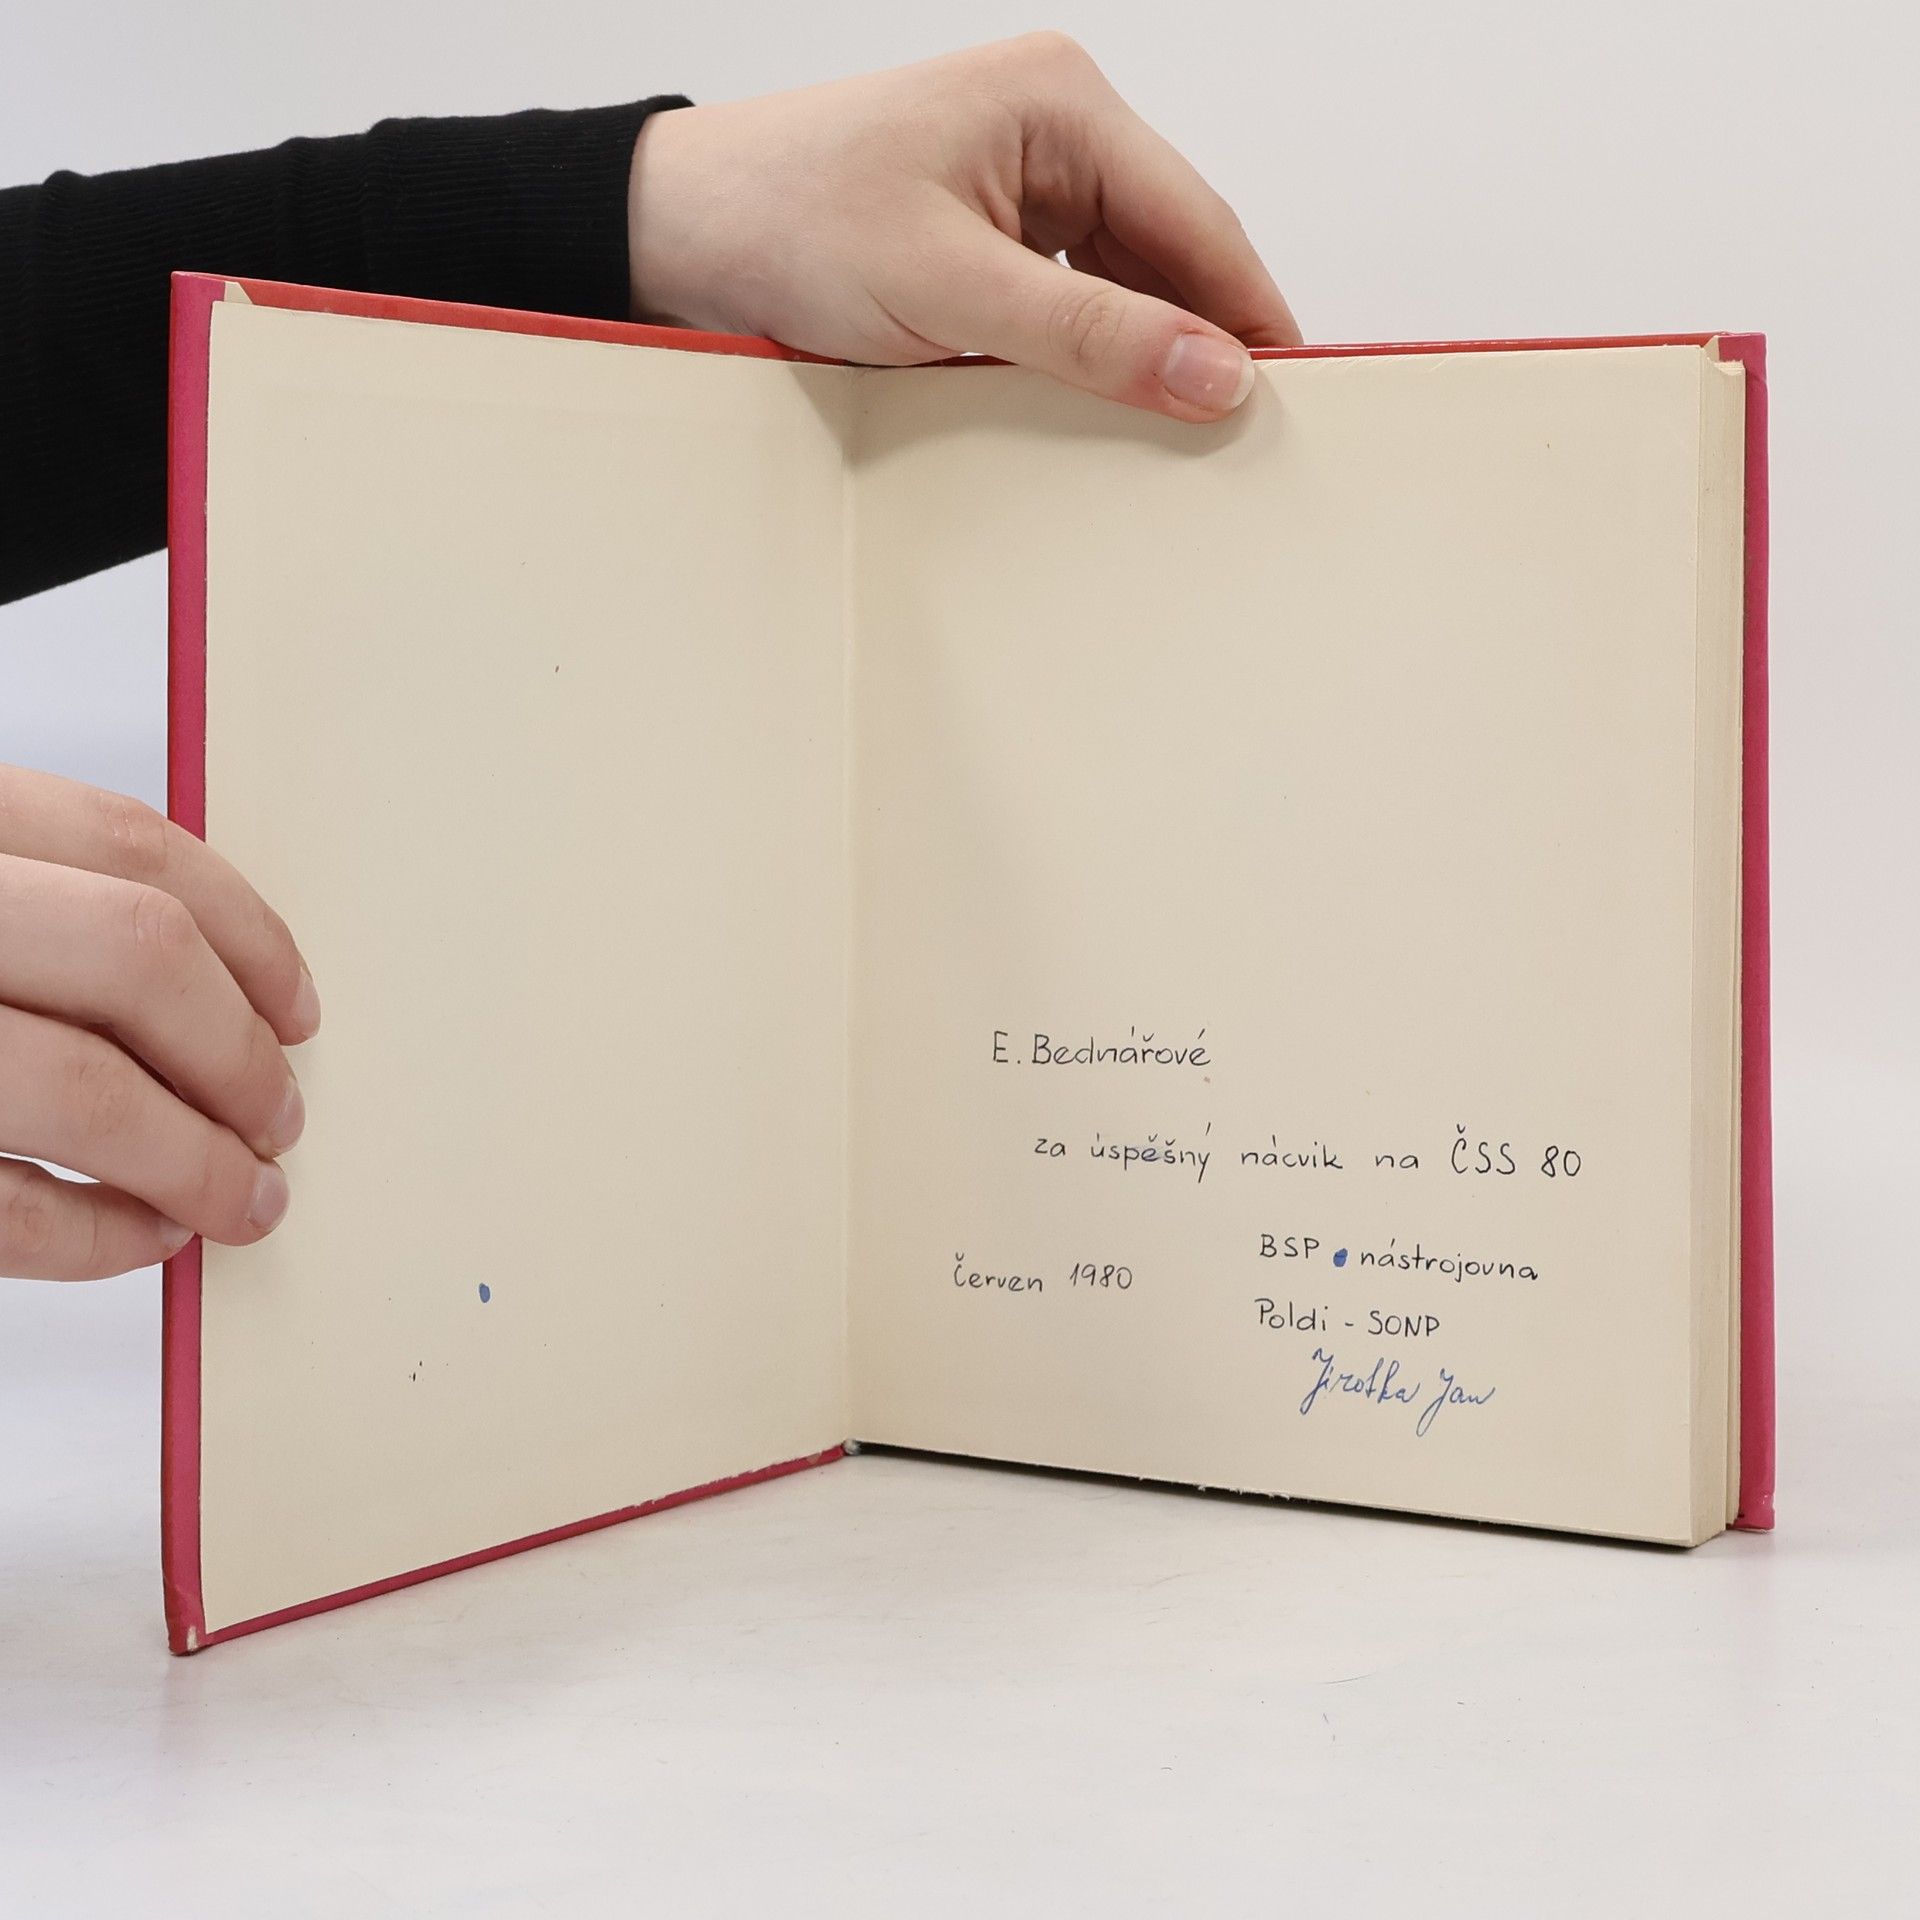 E. Bednářové
za úspěšný nácvik na ČSS 80
Červen 1980
BSP nástrojovna
Poldi - SONP
Jirotka Jan